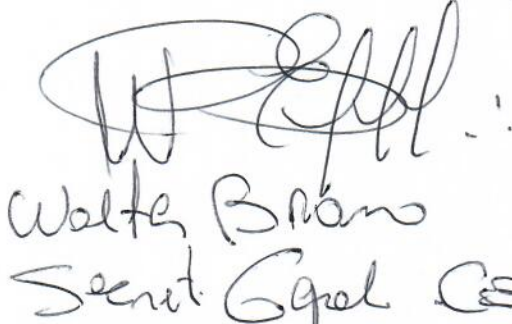 Walter Briano
Secret. Gral. CE